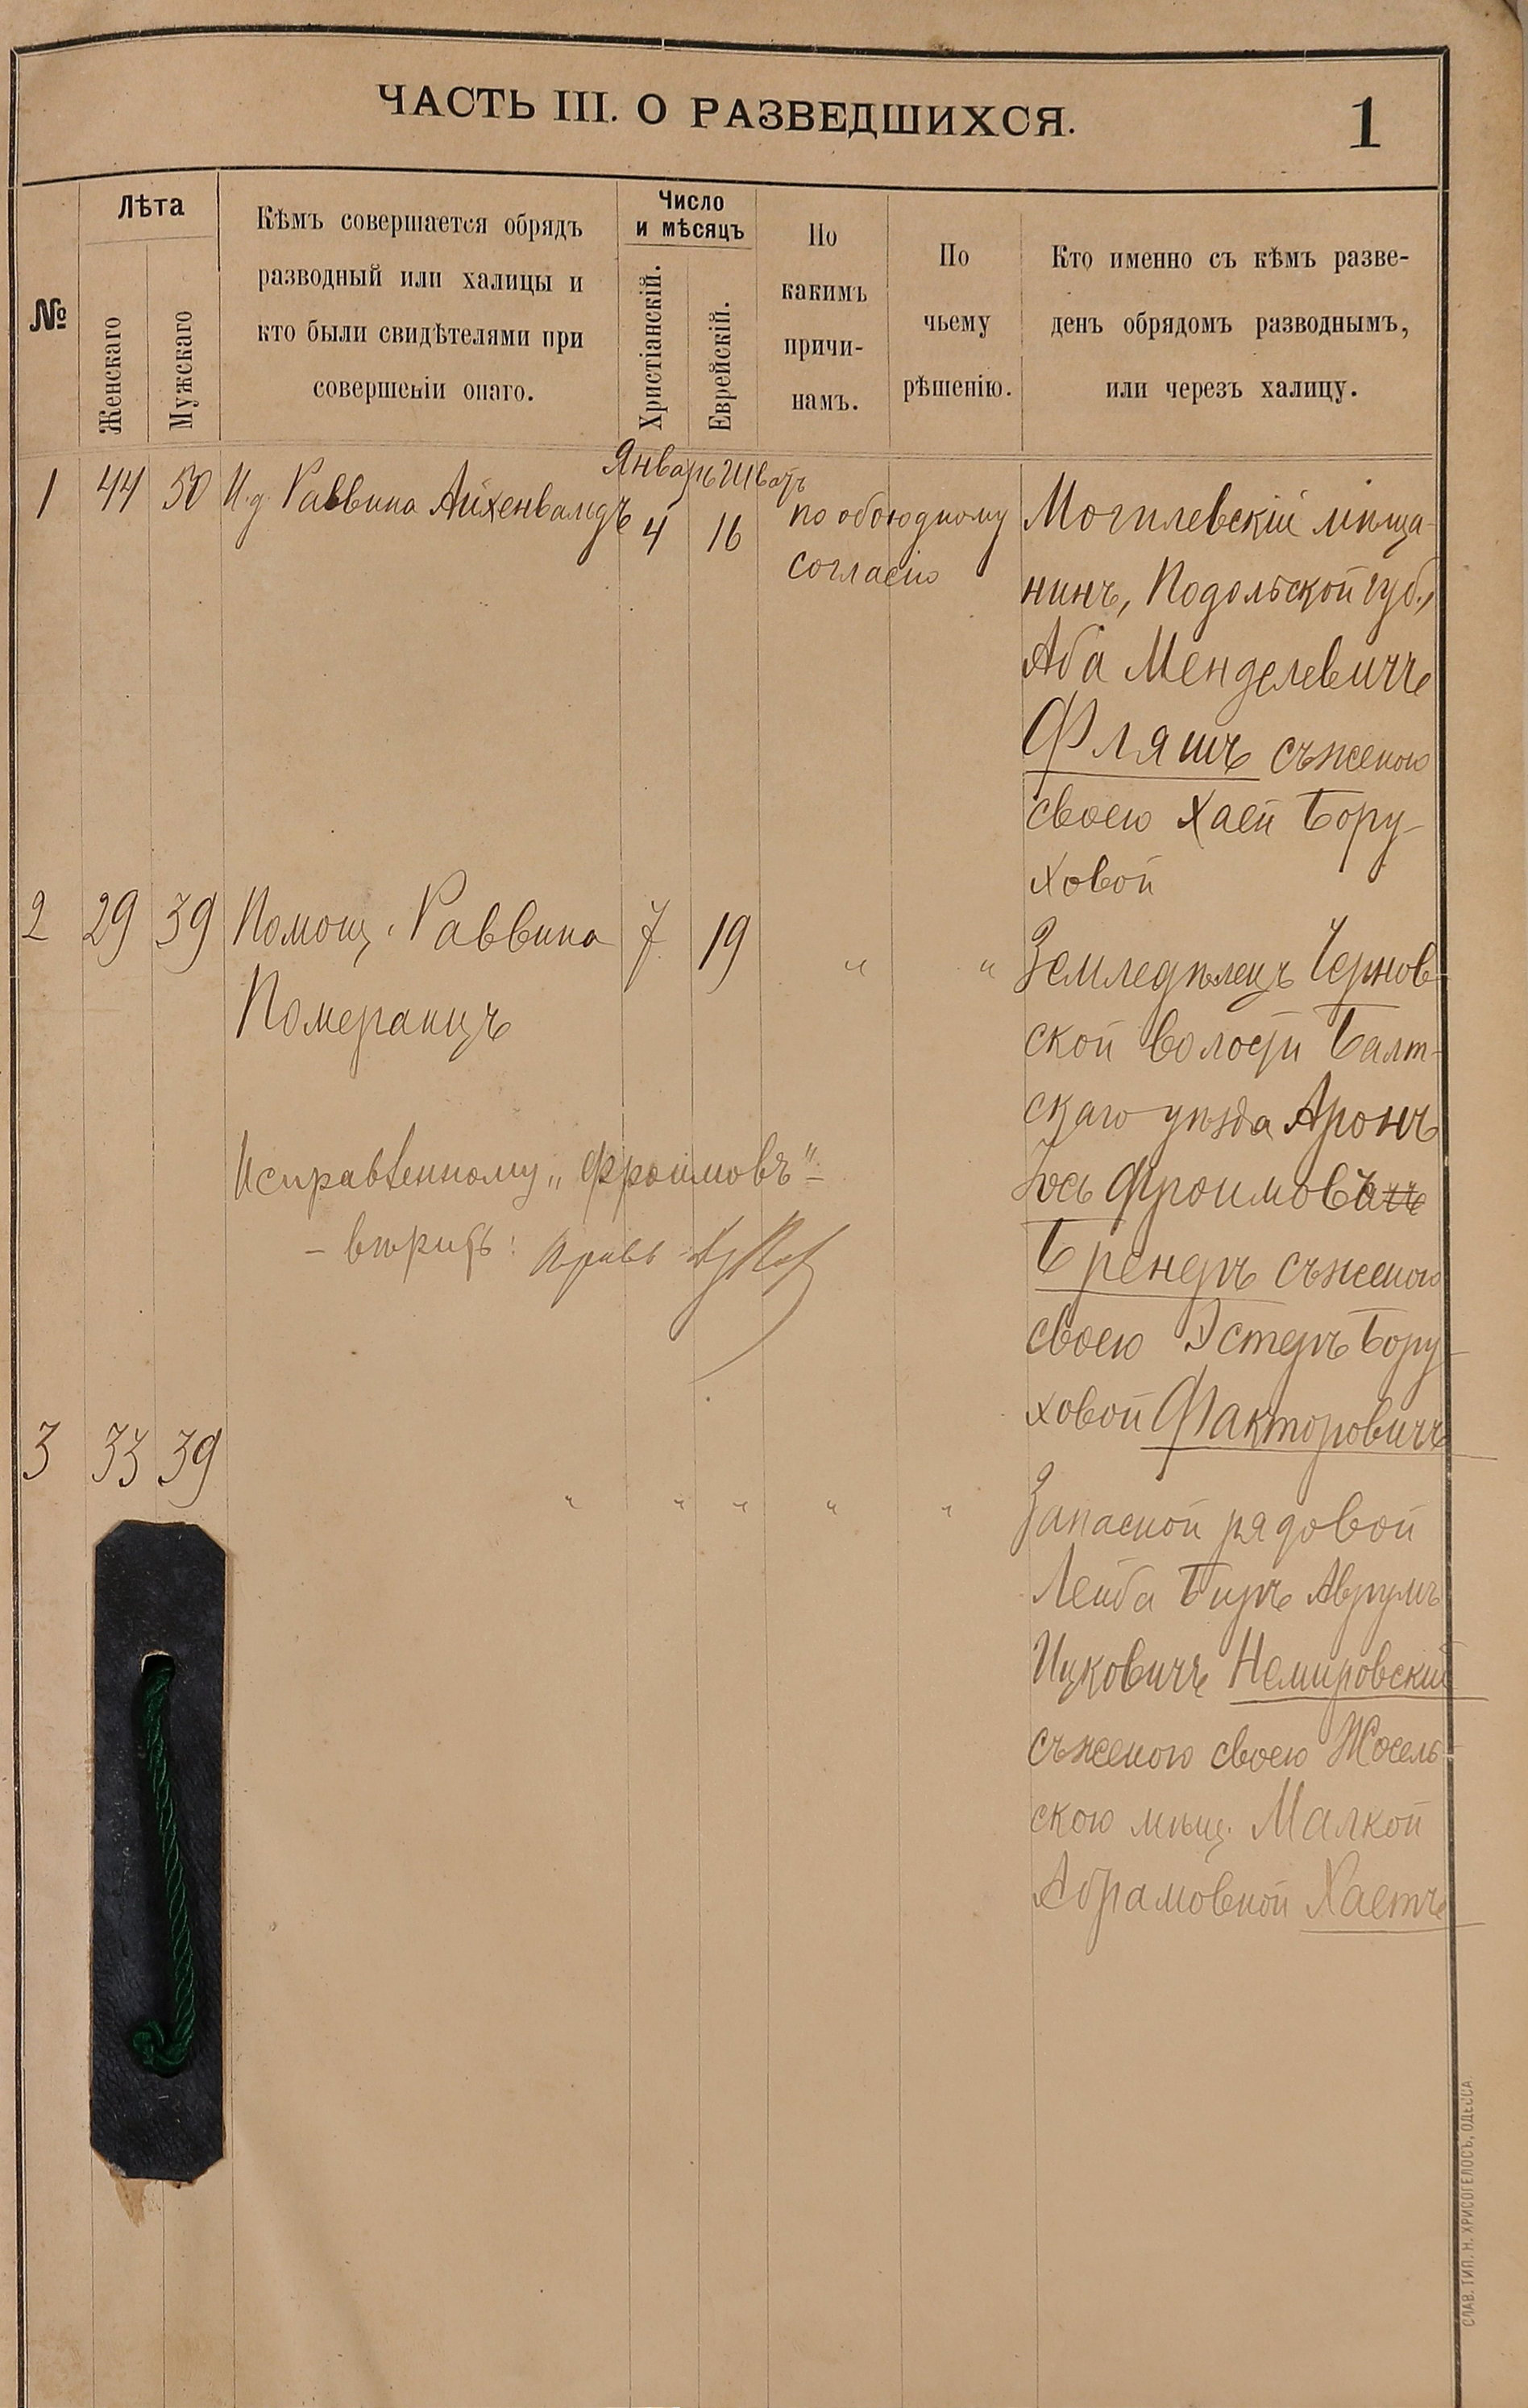 ЧАСТЬ III. О РАЗВЕДШИХСЯ.
1
№
Лѣта
Женскаго
Мужскаго
Кѣмъ совершается обрядъ
разводный или халицы и
кто были свидѣтелями при
совершеніи онаго.
Число
и мѣсяцъ
Христіанскій.
Еврейскій.
По
какимъ
причи-
намъ.
По
чьему
рѣшенію.
Кто именно съ кѣмъ разве-
денъ обрядомъ разводнымъ,
или черезъ халицу.
Январь Шватъ
1 44 50 И. д. Раввина Айхенвальдъ 4 16 по обоюдному
согласію
Могилевскій мѣща-
нинъ, Подольской губ.,
Аба Менделевичъ
Фляшъ съ женою
своею Хаей Бору-
ховой
2 29 39 Помощ. Раввина 7 19 " "
Померанцъ
Землед­ѣлецъ Чернов-
ской волости Балт-
скаго уѣзда Аронъ
Іось Фроимовъ
Брендеръ съ женою
своею Эстеръ Бору-
ховой Факторовичъ
Исправленному „Фроимовъ"
– вѣрить:
3 33 39 " " " " "
Запасной рядовой
Лейба Беръ Аврумъ
Ицковичъ Немировскій
съ женою своею Жосель-
скою мѣщ. Малкой
Абрамовной Хаетъ
СЛАВ. ТИП. Н. ХРИСОГЕЛОСЪ, ОДЕССА.